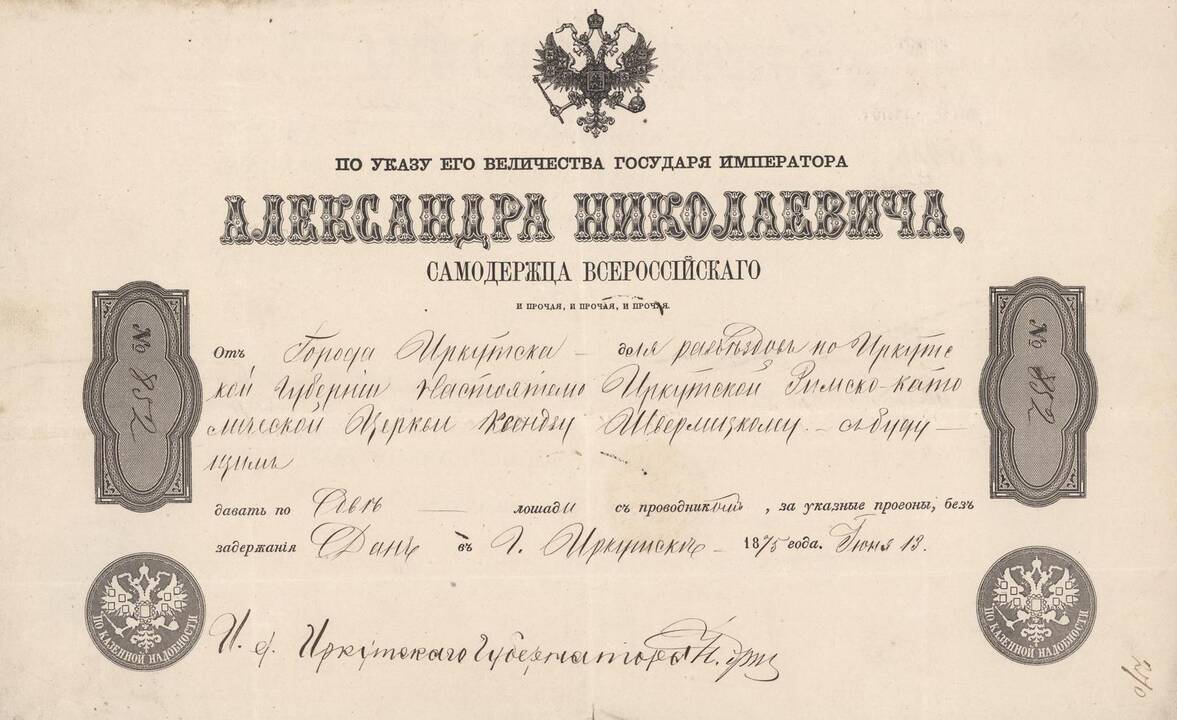 ПО УКАЗУ ЕГО ВЕЛИЧЕСТВА ГОСУДАРЯ ИМПЕРАТОРА
АЛЕКСАНДРА НИКОЛАЕВИЧА,
САМОДЕРЖЦА ВСЕРОССІЙСКАГО
И ПРОЧАЯ, И ПРОЧАЯ, И ПРОЧАЯ.
№ 852
№ 852
Отъ Города Иркутска – для разъѣздовъ по Иркутс
кой Губерніи Настоятелю Иркутской Римско-като
лической Церкви Ксендзу Швермицкому – съ буду –
щимъ
давать по Двѣ — лошади съ проводникомъ, за указные прогоны, безъ
задержанія Данъ въ Г. Иркутскѣ – 1875 года. Іюня 13.
ПО КАЗЕННОЙ НАДОБНОСТИ
ПО КАЗЕННОЙ НАДОБНОСТИ
И. д. Иркутскаго Губернатора